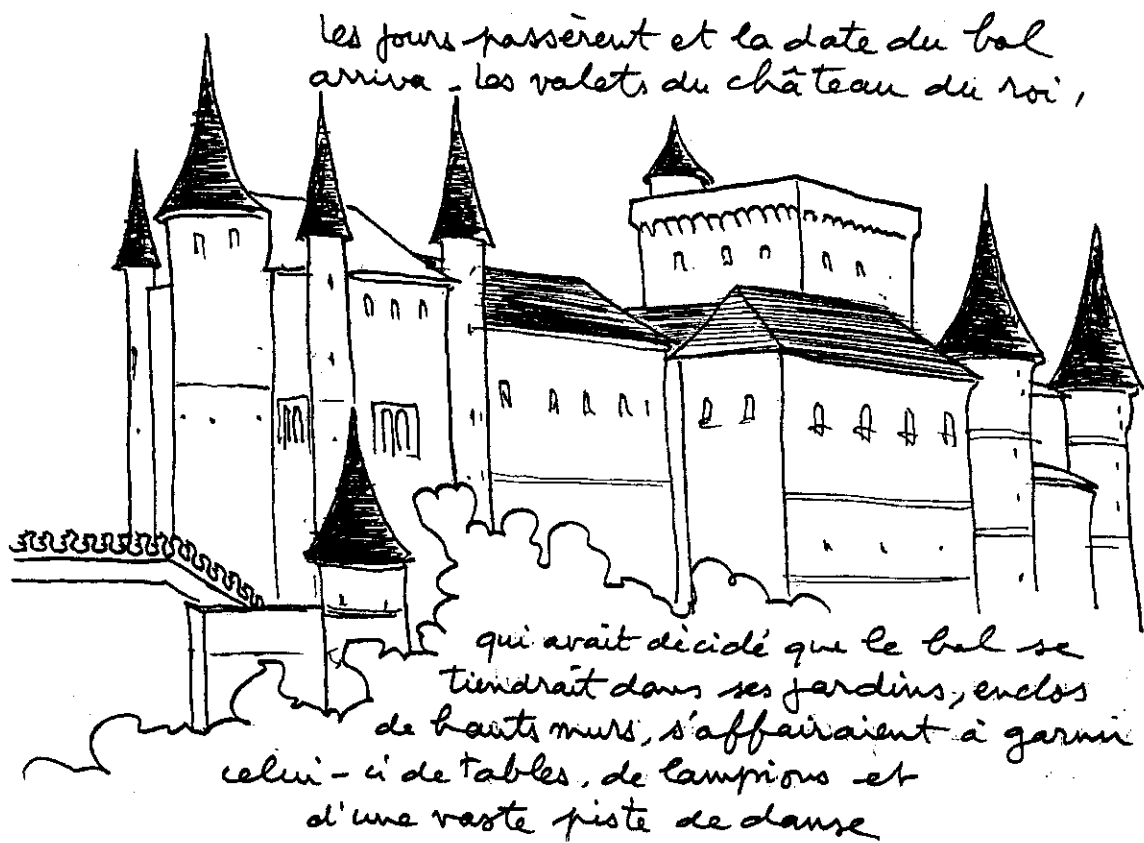 Les jours passèrent et la date du bal
arriva - Les valets du château du roi,
qui avait décidé que le bal se
tiendrait dans ses jardins, enclos
de hauts murs, s'affairaient à garnir
celui-ci de tables, de lampions et
d'une vaste piste de danse